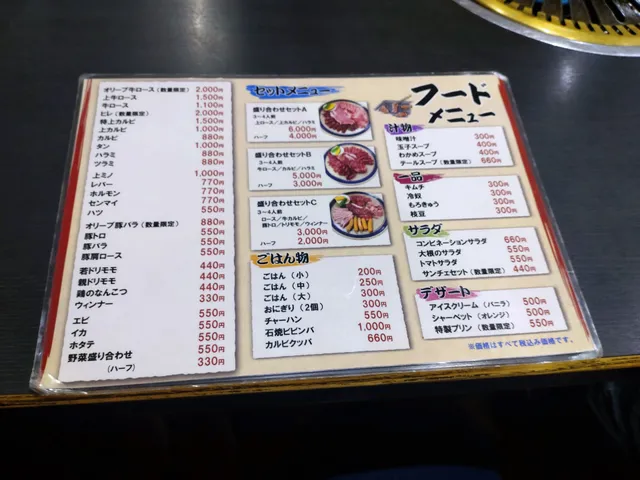 オリーブ牛ロース(数量限定) 2,000円
上牛ロース 1,500円
牛ロース 1,100円
ヒレ(数量限定) 2,000円
特上カルビ 1,500円
上カルビ 1,000円
カルビ 880円
タン 1,000円
ハラミ 880円
ツラミ 880円
上ミノ 1,000円
レバー 770円
ホルモン 770円
センマイ 770円
ハツ 550円
オリーブ豚バラ(数量限定) 880円
豚トロ 550円
豚バラ 550円
豚肩ロース 550円
若ドリモモ 440円
親ドリモモ 440円
鶏のなんこつ 440円
ウィンナー 330円
エビ 550円
イカ 550円
ホタテ 550円
野菜盛り合わせ 550円
(ハーフ) 330円
セットメニュー
盛り合わせセットA
3~4人前
上ロース/上カルビ/ハラミ
6,000円
ハーフ 4,000円
盛り合わせセットB
3~4人前
牛ロース/カルビ/ハラミ
5,000円
ハーフ 3,000円
盛り合わせセットC
3~4人前
ロース/牛カルビ/
豚トロ/ドリモモ/ウィンナー
3,000円
ハーフ 2,000円
ごはん物
ごはん(小) 200円
ごはん(中) 250円
ごはん(大) 300円
おにぎり(2個) 300円
チャーハン 550円
石焼ビビンバ 1,000円
カルビクッパ 660円
フード
メニュー
汁物
味噌汁 300円
玉子スープ 400円
わかめスープ 400円
テールスープ(数量限定) 660円
一品
キムチ 300円
冷奴 300円
もろきゅう 300円
枝豆 300円
サラダ
コンビネーションサラダ 660円
大根のサラダ 550円
トマトサラダ 550円
サンチェセット(数量限定) 440円
デザート
アイスクリーム(バニラ) 500円
シャーベット(オレンジ) 500円
特製プリン(数量限定) 550円
※価格はすべて税込み価格です。